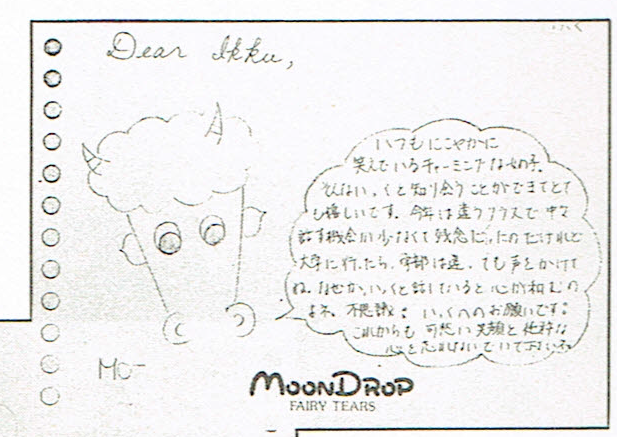 Dear Ikku,
いつもにこやかに
笑んでいるチャーミングな女の子。
そんない、くと知り合うことができてとて
も嬉しいです。今年は違うクラスで中々
話す機会が少なくて残念だったのだけれど
大学に行ったら、学部は違っても声をかけて
ね。なぜか、いっくと話していると心が和むの
よネ。不思議! いっくへのお願いです。
これからも可愛い笑顔と
心を忘れないでいて下さいネ
MO-
MOONDROP
FAIRY TEARS